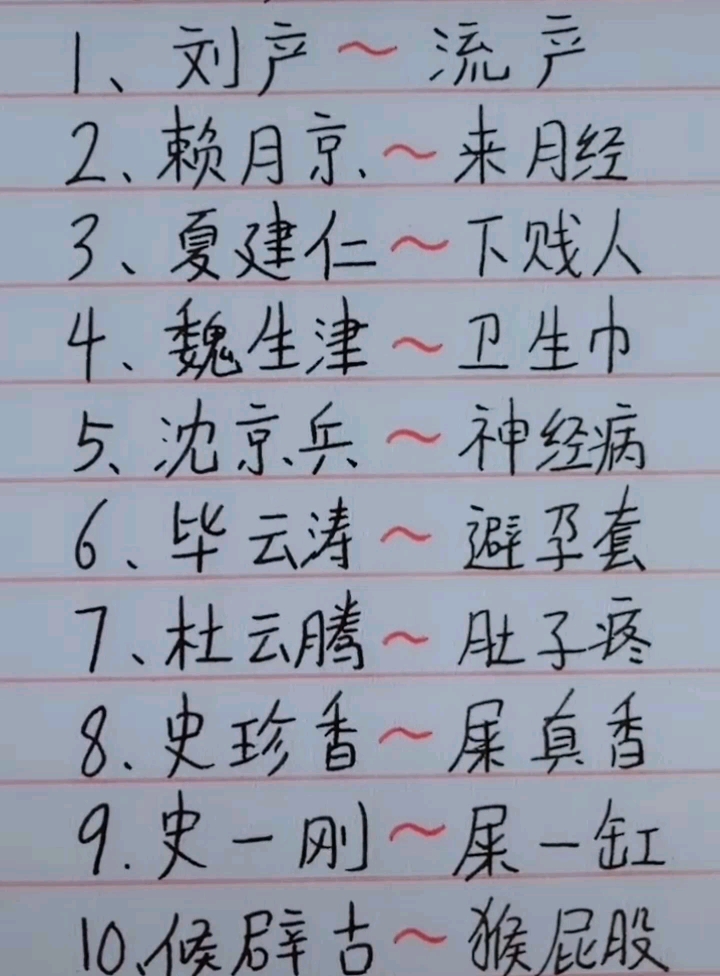 1、刘产~流产
2、赖月京、~来月经
3、夏建仁~下贱人
4、魏生津~卫生巾
5、沈京兵~神经病
6、毕云涛~避孕套
7、杜云腾~肚子疼
8、史珍香~屎真香
9.史一刚~屎一缸
10、候辟古~猴屁股